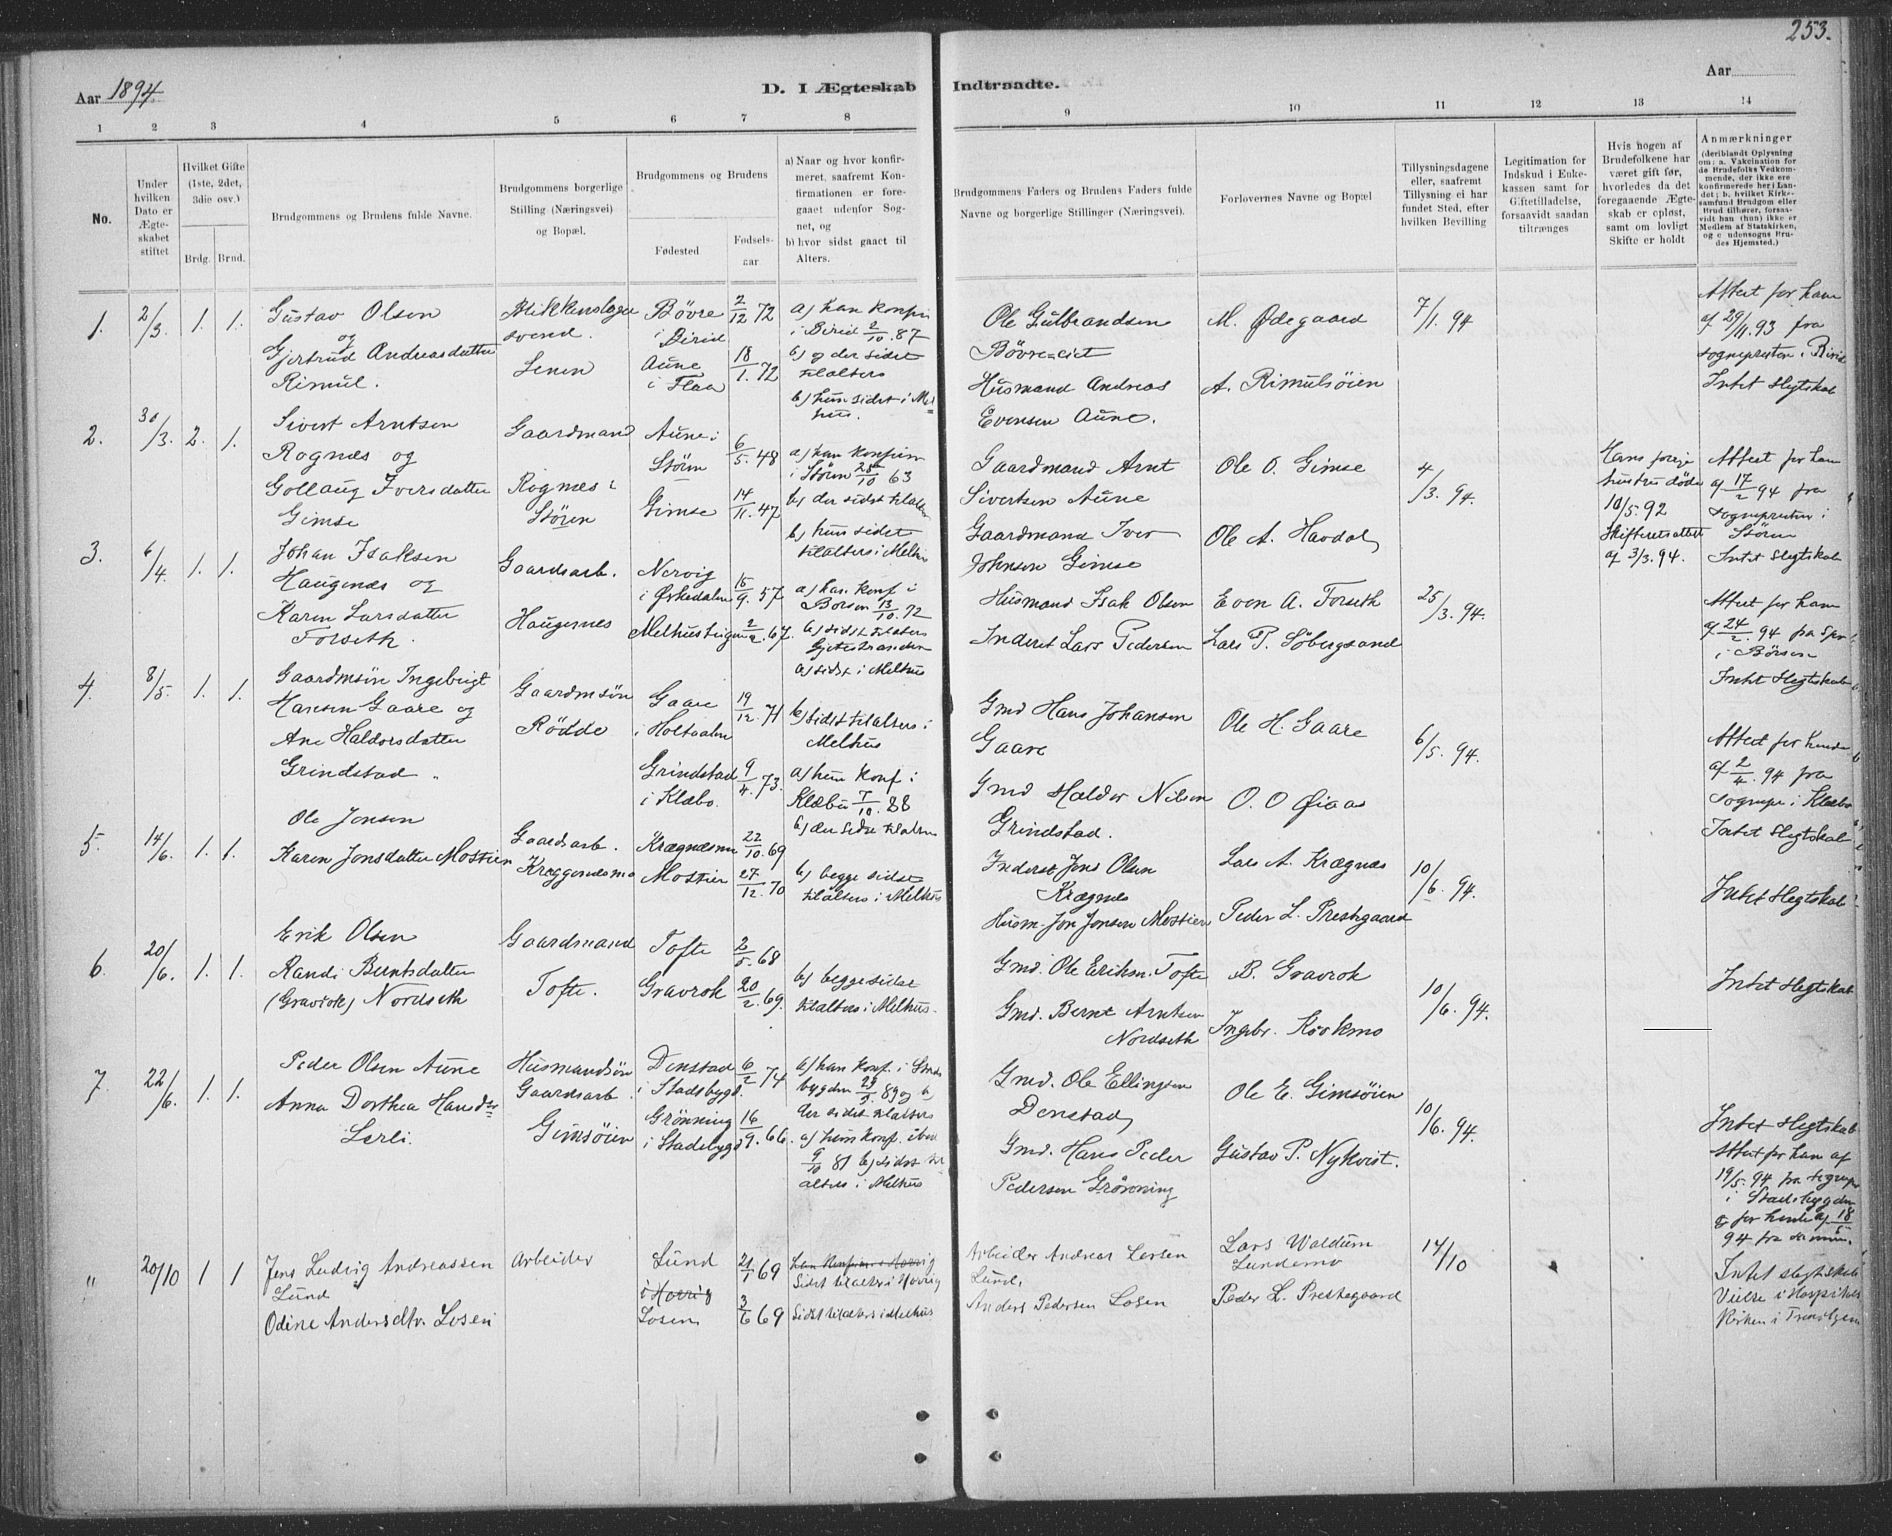 253.
Aar 1894
D. I Ægteskab Indtraadte.
Aar
1 2 3 4 5 6 7 8 9 10 11 12 13 14
No.
Under hvilken Dato er Ægteskabet stiftet
Hvilket Gifte (1ste, 2det, 3die osv.)
Brdg. Brud.
Brudgommens og Brudens fulde Navne.
Brudgommens borgerlige Stilling (Næringsvei) og Bopæl.
Brudgommens og Brudens
Fødested
Fødselsaar
a) Naar og hvor konfirmeret, saafremt Konfirmationen er foregaaet udenfor Sognet, og
b) hvor sidst gaaet til Alters.
Brudgommens Faders og Brudens Faders fulde Navne og borgerlige Stillinger (Næringsvei).
Forlovernes Navne og Bopæl
Tillysningsdagene eller, saafremt Tillysning ei har fundet Sted, efter hvilken Bevilling
Legitimation for Indskud i Enkekassen samt for Giftetilladelse, forsaavidt saadan tiltrænges
Hvis nogen af Brudefolkene har været gift før, hvorledes da det foregaaende Ægteskab er opløst, samt om lovligt Skifte er holdt
Anmærkninger
(deriblandt Oplysning om: a. Vakcination for de Brudefolks Vedkommende, der ikke ere konfirmerede her i Landet; b, hvilket Kirkesamfund Brudgom eller Brud tilhører, forsaavidt han (hun) ikke er Medlem af Statskirken, og c udensogns Brudes Hjemsted.)
1. 2/3. 1. 1.
Gustav Olsen
og
Gjertrud Andreasdatter
Rimul.
svend
Bøvre
i Birid
Aune
i Flaa
2/12 72
18/1. 72
a) han konfir
i Birid 2/10. 87
b) og der sidst
til alters
b) hun sidst i Mel
hus.
Ole Gulbrandsen
Bøvre-eiet
Husmand Andreas
Evensen Aune.
M. Ødegaard
A. Rimulsøien
7/1. 94
Attest for ham
af 29/11. 93 fra
sognepresten i Birid
Intet Slegtskab
2. 30/3. 2. 1.
Sivert Arntsen
Rognæs og
Gollaug Iversdatter
Gimse
Gaardmand
Rognæs i
Støren
Aune i
Støren
Gimse
6/5. 48
14/11. 47
a) han konfirm
i Støren 63
b) der sidst til alters
b) hun sidst
til alters i Melhus
Gaardmand Arnt
Sivertsen Aune
Gaardmand Iver
Johnsen Gimse
Ole O. Gimse
Ole A. Havdal
4/3. 94.
Hans forige
hustru døde
10/5. 92
Skifteretsattest
af 3/3. 94.
Attest for ham
af 17/2 94 fra
sognepresten i
Støren
Intet Slegtskab
3. 6/4. 1. 1.
Johan Isaksen
Haugenæs og
Karen Larsdatter
Forseth.
Gaardsarb.
Haugenæs
i Ørkedalen
15/9. 57
2/2. 67.
a) han konf i
Børsen 13/10. 72
b) sidst til alters
a) sidst i Melhus
Husmand Isak Olsen
Inderst Lars Pedersen
Even A. Forseth
Lars P. Søbergsand
25/3. 94.
Attest for ham
af 24/2. 94 fra Spr
i Børsen
Intet Slegtskab
4. 8/5. 1. 1.
Gaardmsøn Ingebrigt
Hansen Gaare og
Ane Haldorsdatter
Grindstad
Gaardmsøn
Rødde
Gaare
i Holtaalen
Grindstad
i Klæbo.
19/12. 71
9/4. 73.
b) sidst til alters i
Melhus
a) hun konf i
Klæbu 7/10. 88
b) der sidst til alters
Gmd Hans Johansen
Gaare
Gmd Haldor Nilsen
Grindstad.
Ole H. Gaare
O. O Øiaas
6/5. 94.
Attest for hende
af 2/4. 94 fra
sognepr i Klæbu
Intet Slegtskab
5. 14/6. 1. 1.
Ole Jensen
Karen Jonsdatter Mostien
Gaardsarb.
Mostien
22/10. 69
27/12. 70
b) begge sidst
til alters i Melhus
Inderst Jens Olsen
Krægnes
Husm Jon Jonsen Mostien
Lars A. Krægnæs
Peder L. Prestegaard
10/6. 94.
Intet Slegtskab
6. 20/6. 1. 1.
Erik Olsen
Randi Berntsdatter
(Gravrok) Nordseth
Gaardmand
Tofte.
Tofte
Gravrok
2/5. 68
20/2. 69.
b) begge sidst
til alters i Melhus.
Gmd. Ole Eriksn. Tofte
Gmd. Bernt Arntsen
Nordseth
B. Gravrok
Ingebr. Krokmo
10/6. 94.
Intet Slegtskab
7. 22/6. 1. 1.
Peder Olsen Aune
Anna Dorthea Hansdtr
Lerli.
Husmandsøn
Gaardsarb.
Gimsøien
Denstad
i Stadsbygd.
Grønning
i Stadsbygd
6/2 74
16/9. 66.
a) han konf. i Stads
bygden 89 og b
der sidst til alters
a) hun konf. ibid
9/10 81 b) sidst til
alters i Melhus
Gmd. Ole Ellingsen
Denstad
Gmd. Hans Peder
Pedersen Grønning
Ole E. Gimsøien
Gustav P. Nykvist.
10/6. 94.
Intet Slegtskab
Attest for ham af
19/5. 94 fra sognepr
i Stadsbygden
& for hende af 18/5
94 fra samme.
" 20/10 1 1
Jens Ludvig Andreassen
Lund
Odine Andersdtr. Losen
Arbeider
Lund
i Horrig
Losen
21/1 69
3/6 69
Sidst til alters i Horrig
Sidst til alters i Melhus
Arbeider Andreas Larsen
Lund,
Anders Pedersen Losen
Lars Waldum
Lundemo
Peder L. Prestegaard
14/10
Intet slegtskab
Vielse i Hospitals
Kirken i Trondhjem